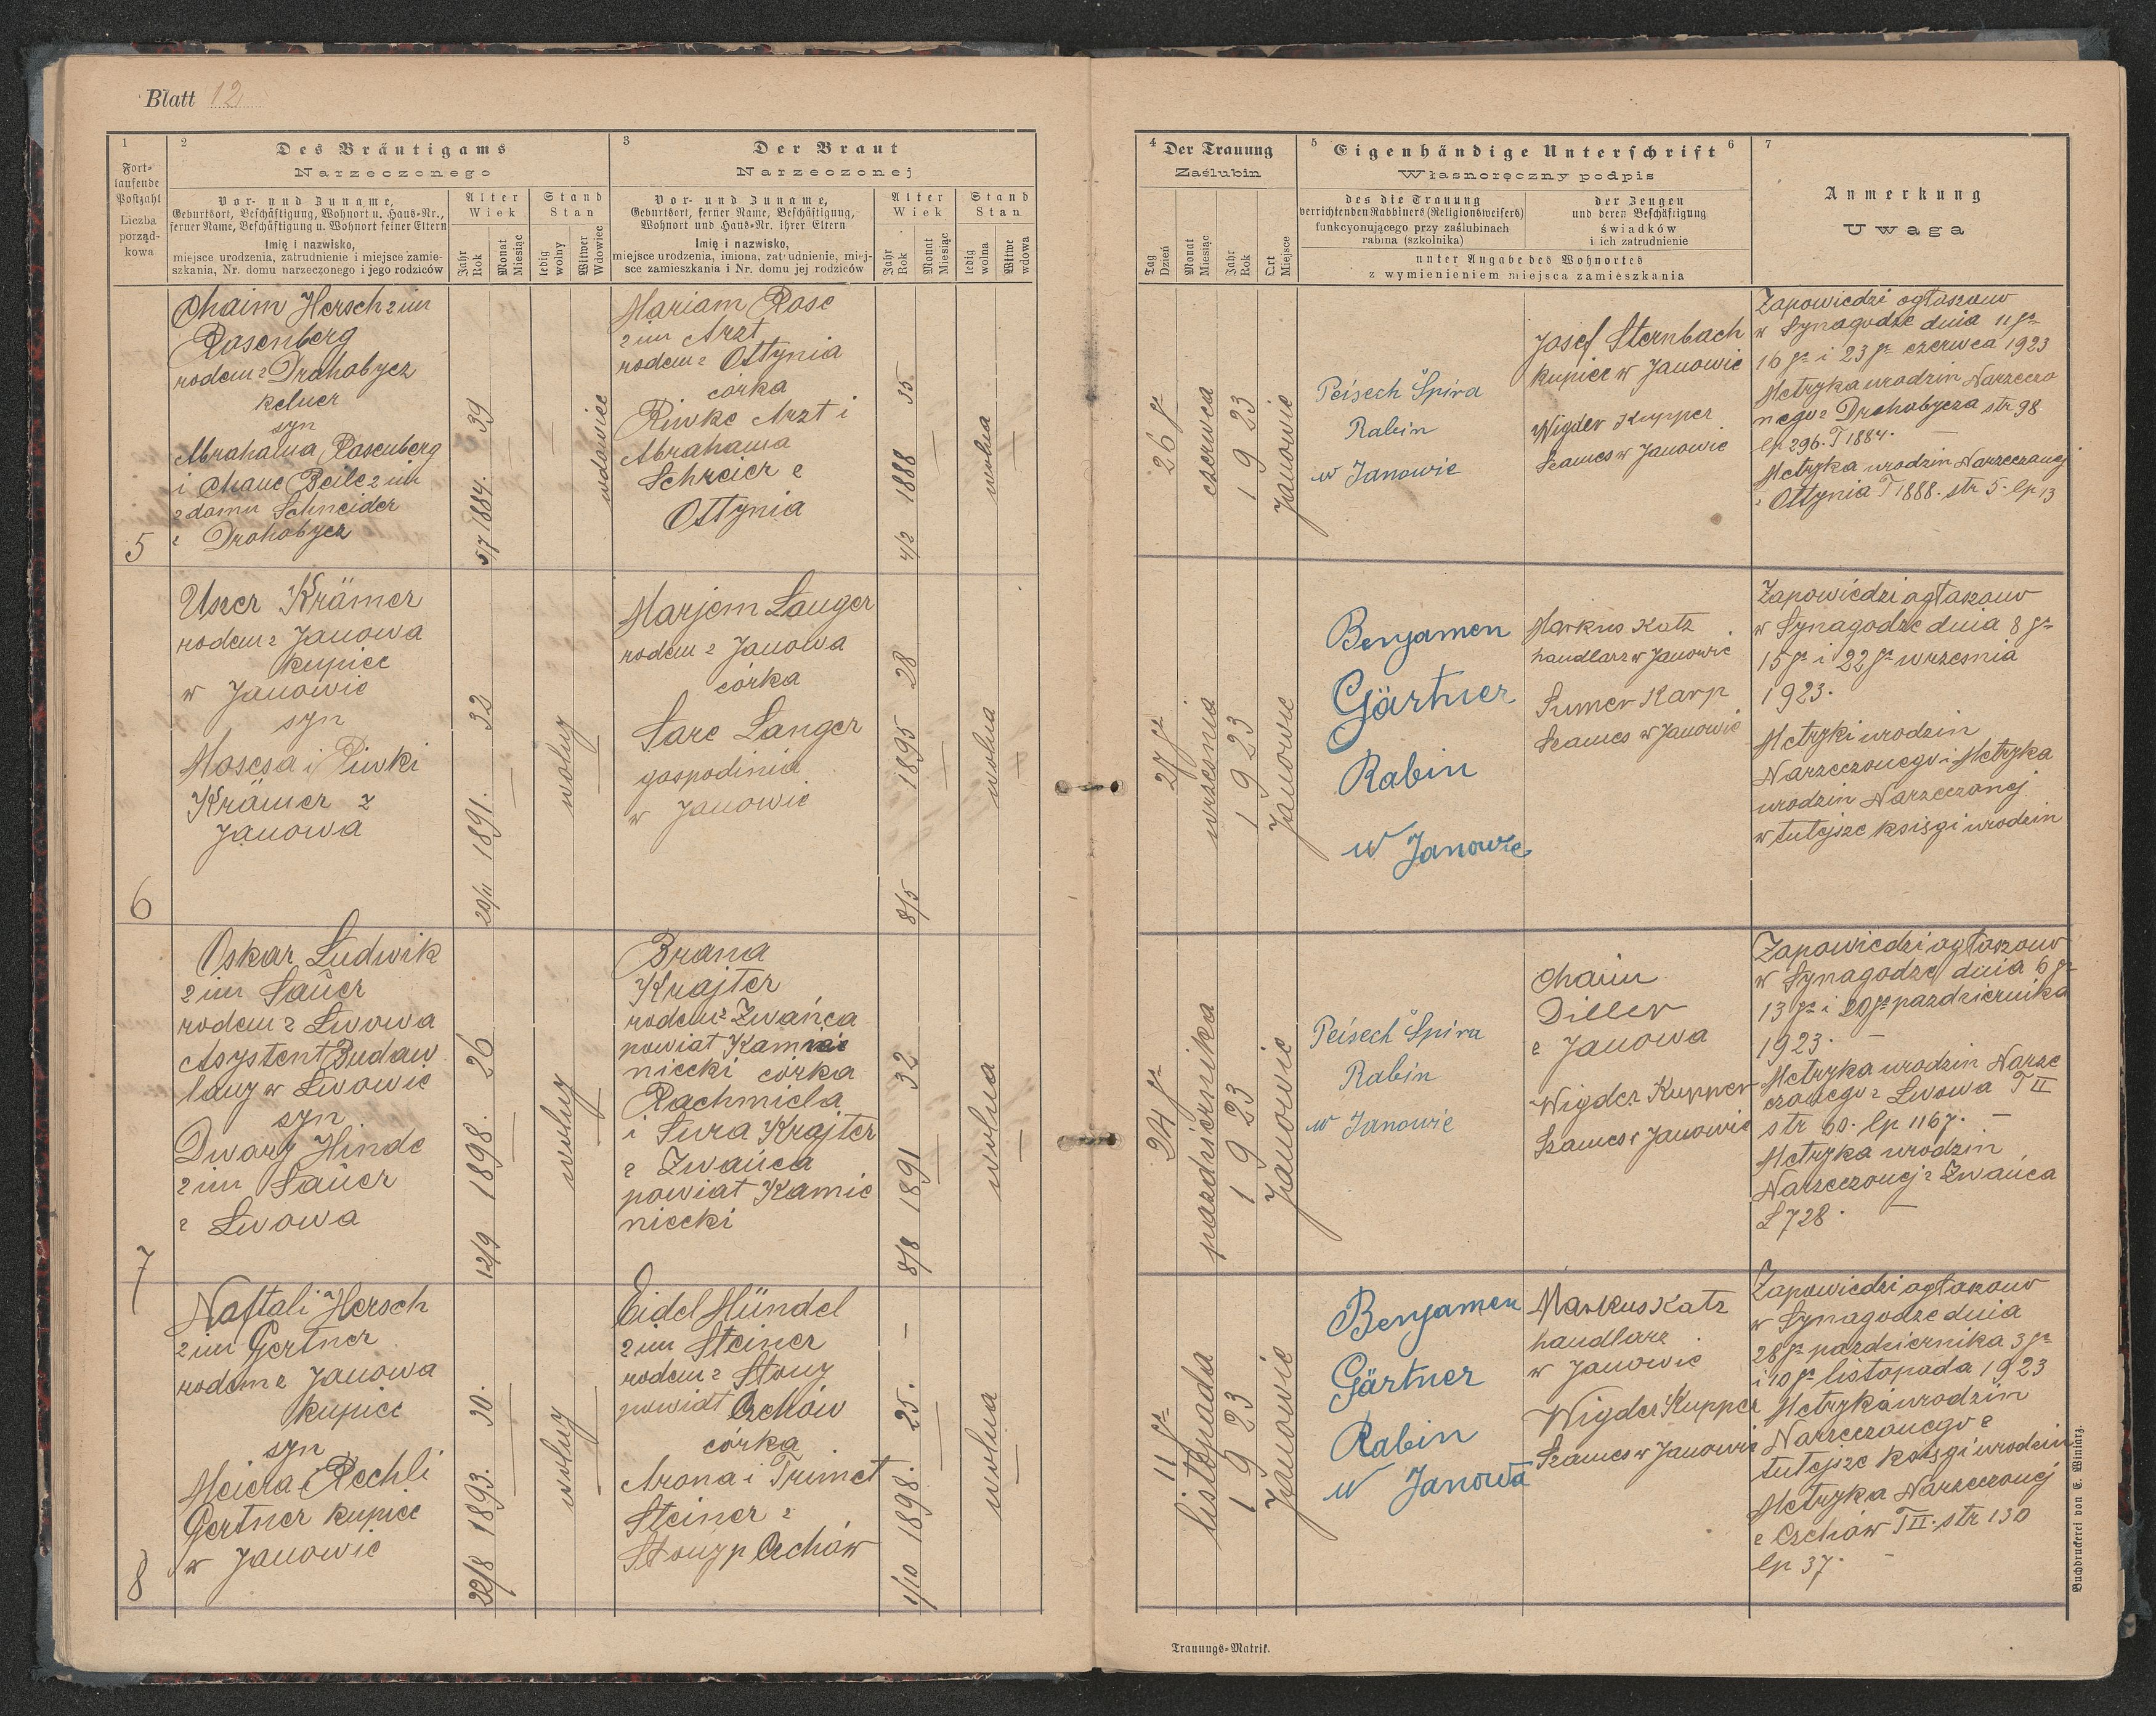 Blatt 12
1
Fort-
laufende
Postzahl
Liczba
porząd-
kowa
2
Des Bräutigams
Narzeczonego
Vor- und Zuname,
Geburtsort, Beschäftigung, Wohnort u. Haus-Nr.,
ferner Name, Beschäftigung u. Wohnort seiner Eltern
Imię i nazwisko,
miejsce urodzenia, zatrudnienie i miejsce zamie-
szkania, Nr. domu narzeczonego i jego rodziców
Alter
Wiek
Jahr
Rok
Monat
Miesiąc
Stand
Stan
ledig
wolny
Witwer
Wdowiec
3
Der Braut
Narzeczonej
Vor- und Zuname,
Geburtsort, ferner Name, Beschäftigung,
Wohnort und Haus-Nr. ihrer Eltern
Imię i nazwisko,
miejsce urodzenia, imiona, zatrudnienie, miej-
sce zamieszkania i Nr. domu jej rodziców
Alter
Wiek
Jahr
Rok
Monat
Miesiąc
Stand
Stan
ledig
wolna
Witwe
wdowa
4
Der Trauung
Zaślubin
Tag
Dzień
Monat
Miesiąc
Jahr
Rok
Ort
Miejsce
5
Eigenhändige Unterschrift
6
Własnoręczny podpis
des die Trauung
verrichtenden Rabbiners (Religionsweisers)
funkcyonującego przy zaślubinach
rabina (szkolnika)
der Zeugen
und deren Beschäftigung
świadków
i ich zatrudnienie
unter Angabe des Wohnortes
z wymienieniem miejsca zamieszkania
7
Anmerkung
Uwaga
5
Chaim Hersch 2 im
Rosenberg
rodem z Drohobycz
kelner
syn
Abrahama Rosenberg
i Chane Beile 2 im
z domu Schneider
z Drohobycz
39
5/7 1884.
wdowiec
Mariam Rose
2 im Arzt
rodem z Ottynia
córka
Riwke Arzt i
Abrahama
Schreier z
Ottynia
35
4/2 1888
wolna
26 go
czerwca
1923
Janowie
Peisech Spira
Rabin
w Janowie
Josef Sternbach
kupiec w Janowie
Wigder Kupper
Szames w Janowie
Zapowiedzi ogłaszow
w Synagodze dnia 11 go
16 go i 23 go czerwca 1923
Metryka urodzin Narzeczo
nego z Drohobycza str 98.
lp 296. T 1884.
Metryka urodzin Narzeczonej
z Ottynia T 1888. str 5. lp 13
6
Uszer Krämer
rodem z Janowa
kupiec
w Janowie
syn
Mosesa i Riwki
Krämer z
Janowa
32
20/11 1891.
wolny
Marjem Langer
rodem z Janowa
córka
Sare Langer
gospodinia
w Janowie
28
8/5 1895
wolna
27 go
wrzesnia
1923
Janowie
Benjamen
Gärtner
Rabin
w Janowie
Markus Katz
handlarz w Janowie
Sumer Karp
Szames w Janowie
Zapowiedzi ogłaszow
w Synagodze dnia 8 go
15 go i 22 go wrzesnia
1923.
Metryki urodzin
Narzeczonego i Metryka
urodzin Narzeczonej
w tutejsze księgi urodzin
7
Oskar Ludwik
2 im Saŭer
rodem z Lwowa
Asystent Budow
lany w Lwowie
syn
Dwory Hinde
2 im Saŭer
z Lwowa
26
12/9 1898.
wolny
Brana
Krajter
rodem z Zwańca
powiat Kamie
niecki córka
Rachmiela
i Sura Krajter
z Zwańca
powiat Kamie
niecki
32
8/8 1891
wolna
24 go
pazdziernika
1923
Janowie
Peisech Spira
Rabin
w Janowie
Chaim
Diller
z Janowa
Wigder Kupper
Szames w Janowie
Zapowiedzi ogłaszow
w Synagodze dnia 6 go
13 go i 20 go pazdziernika
1923.
Metryka urodzin Narze
czonego z Lwowa T II
str 60. lp 1167.
Metryka urodzin
Narzeczonej z Zwańca
L 728.
8
Naftali Hersch
2 im Gertner
rodem z Janowa
kupiec
syn
Meiera i Rechli
Gertner kupiec
w Janowie
30.
22/8 1893.
wolny
Eidel Hündel
2 im Steiner
rodem z Stony
powiat Orchów
córka
Arona i Trimet
Steiner z
Stony p Orchów
25.
1/10 1898.
wolna
11 go
listopada
1923
Janowie
Benjamen
Gärtner
Rabin
w Janowa
Markus Katz
handlarz
w Janowie
Wigder Kupper
Szames w Janowie
Zapowiedzi ogłaszow
w Synagodze dnia
28 go pazdziernika 3 go
i 10 go listopada 1923
Metryka urodzin
Narzeczonego z
tutejsze księgi urodzin
Metryka Narzeczonej
z Orchów T II. str 130
lp 37.
Trauungs-Matrik.
Buchdruckerei von E. Winiarz.